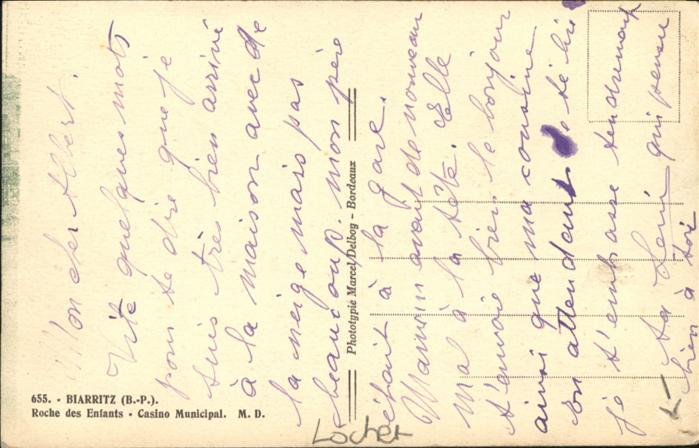 Mon cher Albert.
Vite quelques mots
pour te dire que je
suis très bien arrivé
à la maison avec de
la neige mais pas
beaucoup. mon père
était à la gare.
Maman avait de nouveau
mal à la tête. Elle
t'envoie bien le bonjour
ainsi que ma cousine
en attendant de te lire
je t'embrasse tendrement
ta qui pense
bien à toi
Locher
Phototypie Marcel Delbog - Bordeaux
655. - BIARRITZ (B.-P.).
Roche des Enfants - Casino Municipal. M. D.